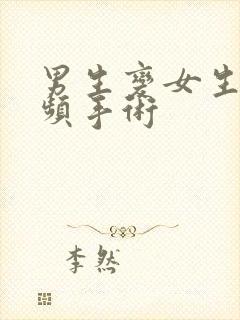 男生變女生
頻手術
李然